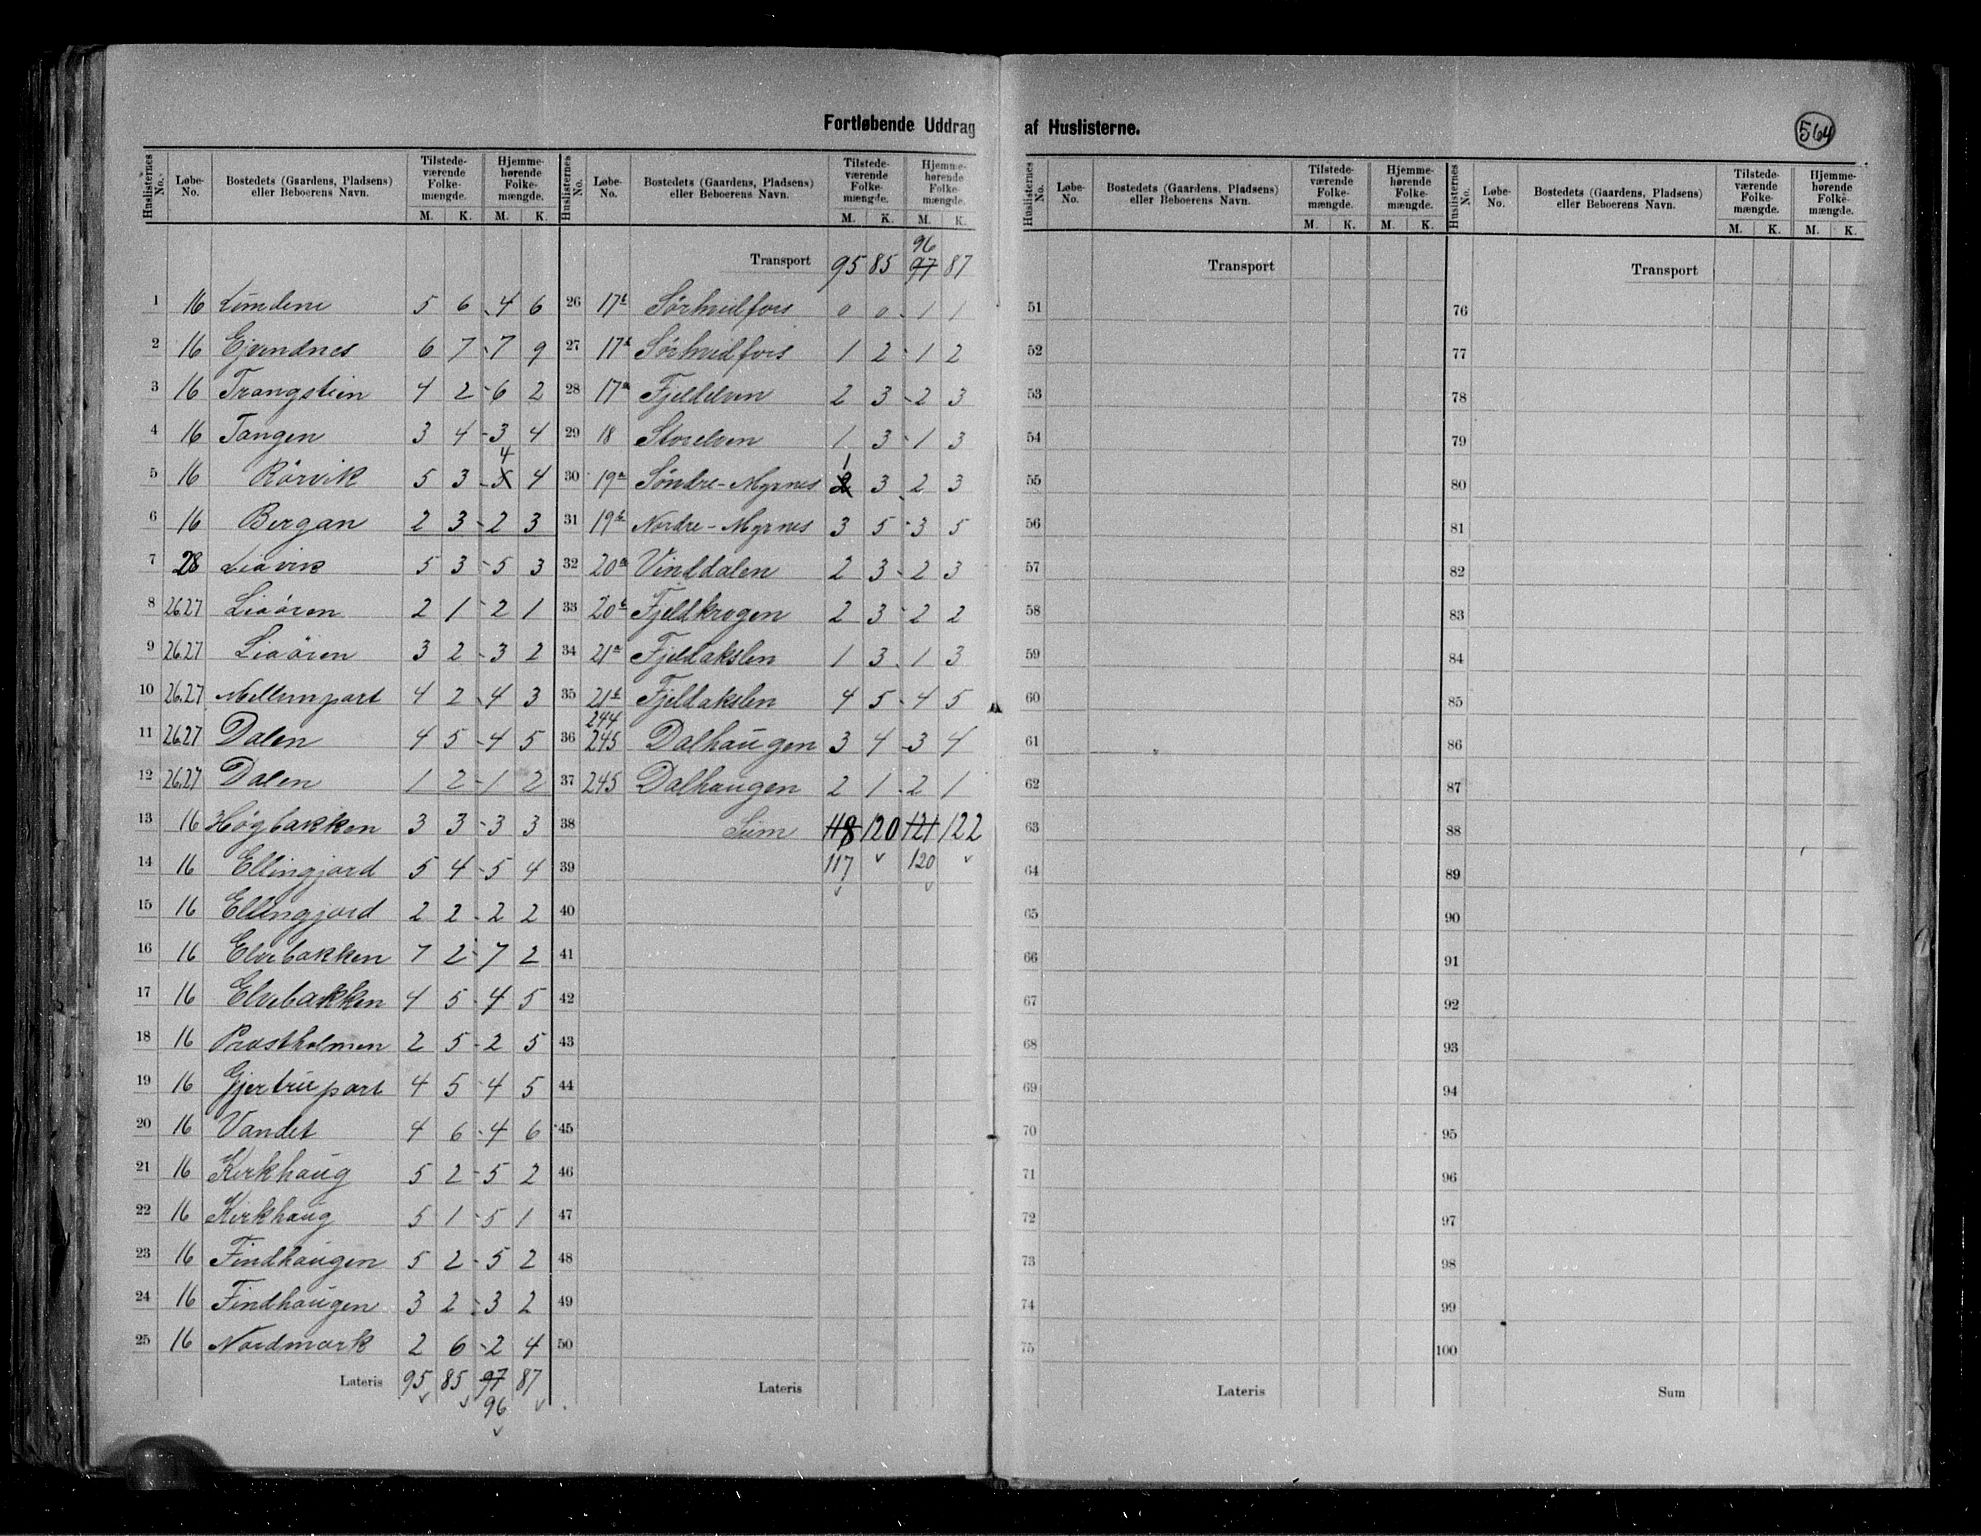 Fortløbende Uddrag af Huslisterne.
564
Huslisternes No. | Løbe-No. | Bostedets (Gaardens, Pladsens) eller Beboerens Navn. | Tilstedeværende Folkemængde. M. K. | Hjemmehørende Folkemængde. M. K.
1 16 Lundene 5 6 - 4 6
2 16 Gjendnes 6 7 - 7 9
3 16 Trangstien 4 2 - 6 2
4 16 Tangen 3 4 - 3 4
5 16 Rörvik 5 3 - 5 4 4
6 16 Bergan 2 3 - 2 3
7 28 Liavik 5 3 - 5 3
8 26.27 Liaören 2 1 - 2 1
9 26.27 Liaören 3 2 - 3 2
10 26.27 Mellumpart 4 2 - 4 3
11 26.27 Dalen 4 5 - 4 5
12 26.27 Dalen 1 2 - 1 2
13 16 Høgbakken 3 3 - 3 3
14 16 Ellingjord 5 4 - 5 4
15 16 Ellingjord 2 2 - 2 2
16 16 Elvebakken 7 2 - 7 2
17 16 Elvebakken 4 5 - 4 5
18 16 Præstholmen 2 5 - 2 5
19 16 Gjertrupart 4 5 - 4 5
20 16 Vandet 4 6 - 4 6
21 16 Kirkhaug 5 2 - 5 2
22 16 Kirkhaug 5 1 - 5 1
23 16 Findhaugen 5 2 - 5 2
24 16 Findhaugen 3 2 - 3 2
25 16 Nordmark 2 6 - 2 4
Lateris 95 85 97 87
96
Huslisternes No. | Løbe-No. | Bostedets (Gaardens, Pladsens) eller Beboerens Navn. | Tilstedeværende Folkemængde. M. K. | Hjemmehørende Folkemængde. M. K.
96
Transport 95 85 97 87
26 17 Sørhudfors 0 0 - 1 1
27 17 Sørhudfors 1 2 - 1 2
28 17a Fjeldelven 2 3 - 2 3
29 18 Storelven 1 3 - 1 3
30 19a Søndre-Myrnes 2 1 3 2 3
31 19b Nordre-Myrnes 3 5 - 3 5
32 20a Vinddalen 2 3 - 2 3
33 20b Fjeldkrogen 2 3 - 2 2
34 21a Fjeldakslen 1 3 - 1 3
35 21b Fjeldakslen 4 5 - 4 5
244
36 245 Dalhaugen 3 4 - 3 4
37 245 Dalhaugen 2 1 - 2 1
38 Sum 118 120 121 122
39 117 120
40
41
42
43
44
45
46
47
48
49
50
Lateris
Huslisternes No. | Løbe-No. | Bostedets (Gaardens, Pladsens) eller Beboerens Navn. | Tilstedeværende Folkemængde. M. K. | Hjemmehørende Folkemængde. M. K.
Transport
51
52
53
54
55
56
57
58
59
60
61
62
63
64
65
66
67
68
69
70
71
72
73
74
75
Lateris
Huslisternes No. | Løbe-No. | Bostedets (Gaardens, Pladsens) eller Beboerens Navn. | Tilstedeværende Folkemængde. M. K. | Hjemmehørende Folkemængde. M. K.
Transport
76
77
78
79
80
81
82
83
84
85
86
87
88
89
90
91
92
93
94
95
96
97
98
99
100
Sum